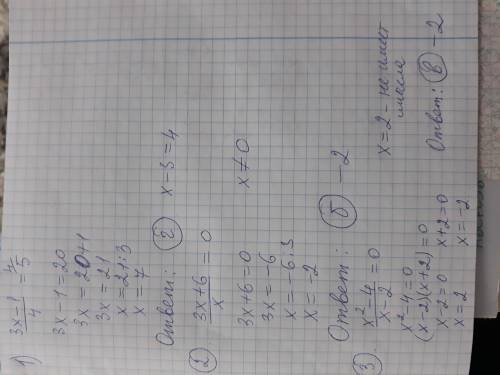 1) 3x-1/4 = 5
3x-1=20
3x=20+1
3x=21
x=21:3
x=7
Ответ: г x-3=4
2 3x+6/x =0
3x+6=0 x≠0
3x=-6
x=-6:3
x=-2
Ответ: б -2
3 x²-4/x-2 =0
x²-4=0
(x-2)(x+2)=0
x-2=0 x+2=0
x=2 x=-2
x=2 - не имеет
смысла
Ответ: в -2